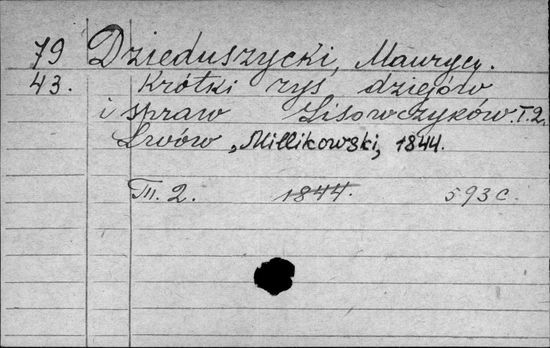 79 Dzieduszycki, Maurycy.
43. Krótki rys dziejów
i spraw Lisowczyków. T. 2.
Lwów, Millikowski, 1844.
III. 2. 1844. 593 c.